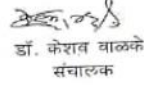 डॉ. केशव वाळके
संचालक